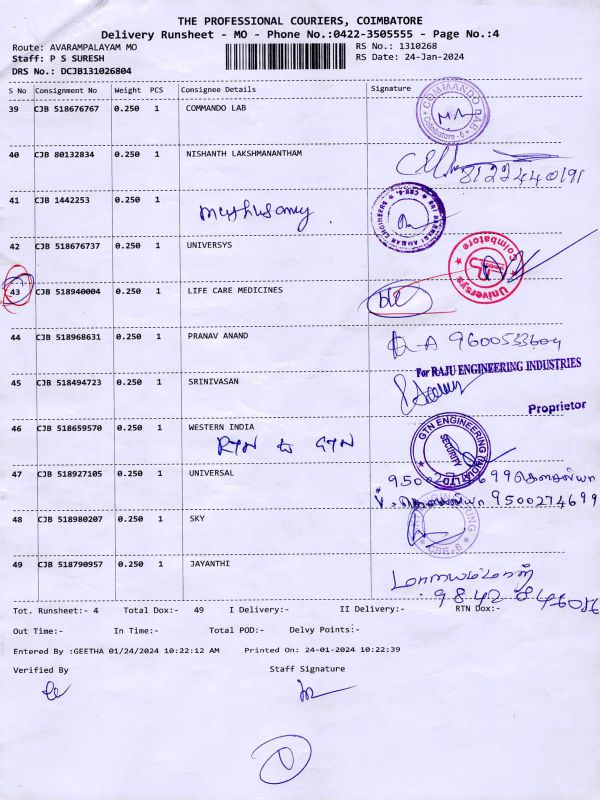 THE PROFESSIONAL COURIERS, COIMBATORE
Delivery Runsheet - MO - Phone No.:0422-3505555 - Page No.:4
Route: AVARAMPALAYAM MO RS No.: 1310268
Staff: P S SURESH RS Date: 24-Jan-2024
DRS No.: DCJB131026804
S No Consignment No Weight PCS Consignee Details Signature
39 CJB 518676767 0.250 1 COMMANDO LAB
COMMANDO LAB Coimbatore - 6
40 CJB 80132834 0.250 1 NISHANTH LAKSHMANANTHAM
8122440191
41 CJB 1442253 0.250 1
Muthusamy
42 CJB 518676737 0.250 1 UNIVERSYS
Universys Coimbatore
43 CJB 518940004 0.250 1 LIFE CARE MEDICINES
44 CJB 518968631 0.250 1 PRANAV ANAND
9600533604
For RAJU ENGINEERING INDUSTRIES
45 CJB 518494723 0.250 1 SRINIVASAN
Proprietor
46 CJB 518659570 0.250 1 WESTERN INDIA
RTN to GTN
GTN ENGINEERING SECURITY
47 CJB 518927105 0.250 1 UNIVERSAL
9500274699
48 CJB 518980207 0.250 1 SKY
CBE-6
49 CJB 518790957 0.250 1 JAYANTHI
Tot. Runsheet:- 4 Total Dox:- 49 I Delivery:- II Delivery:- RTN Dox:-
Out Time:- In Time:- Total POD:- Delvy Points:-
Entered By :GEETHA 01/24/2024 10:22:12 AM Printed On: 24-01-2024 10:22:39
Verified By Staff Signature